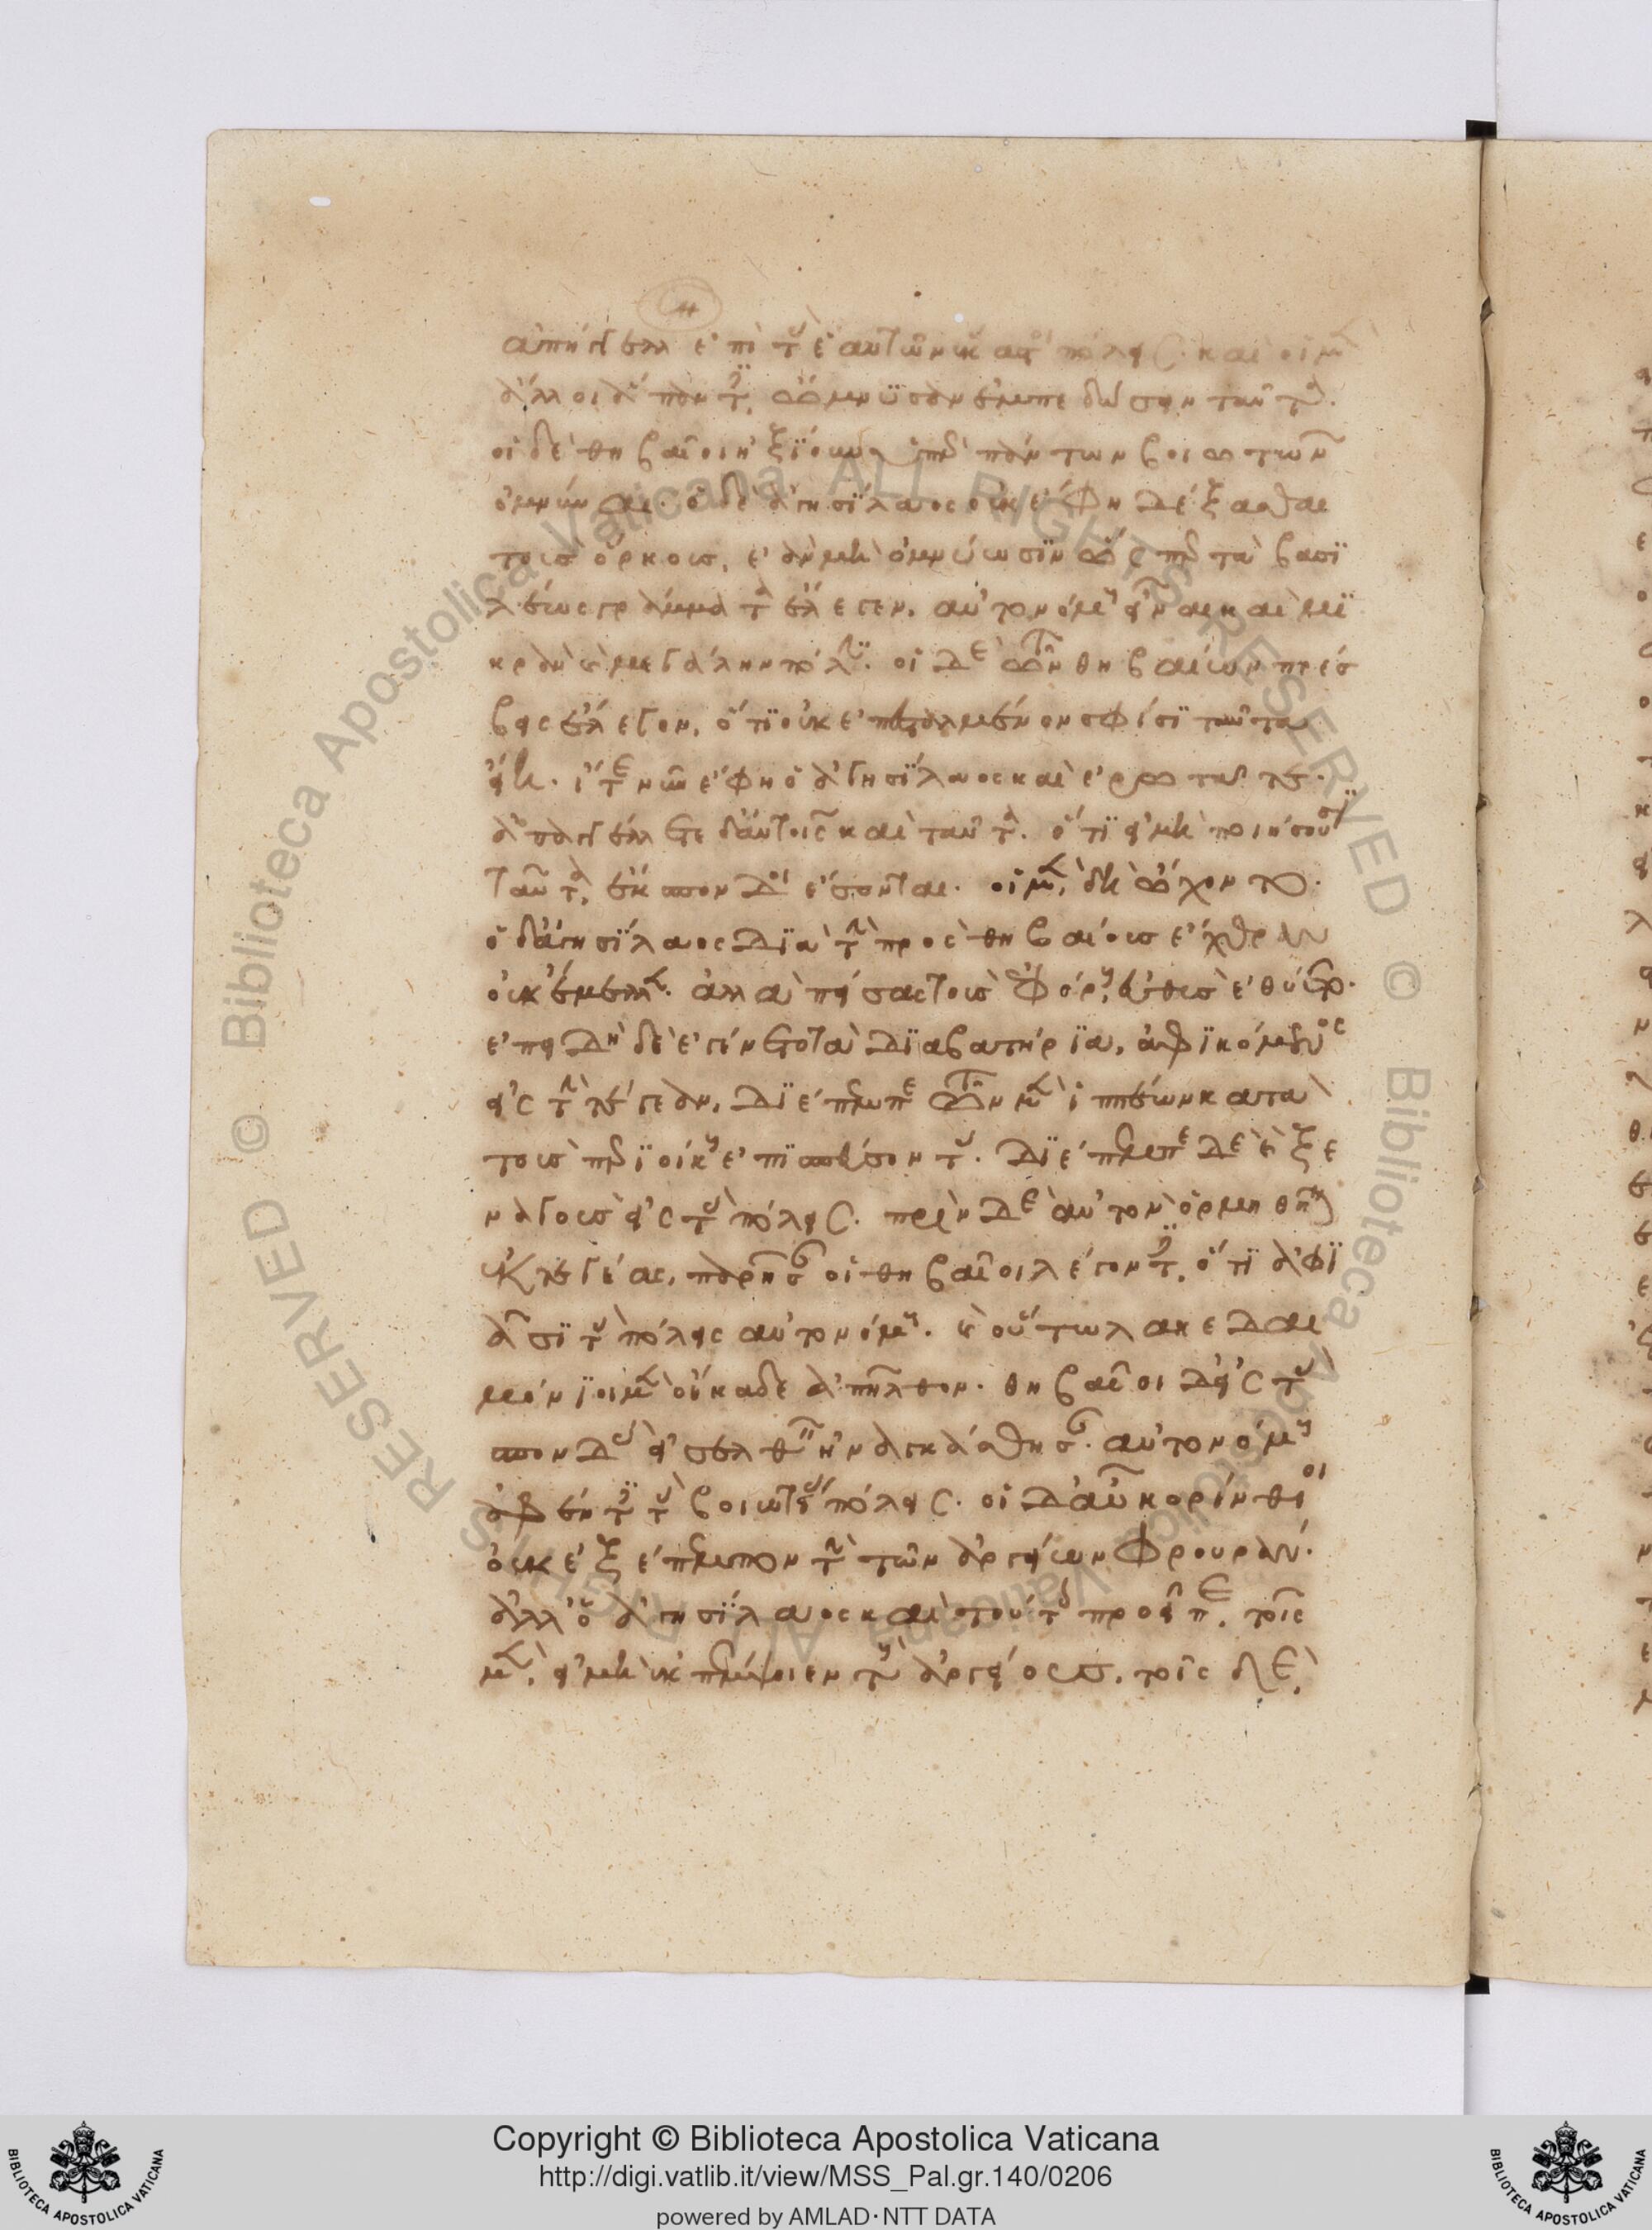 ἀπήγγελλον ἐπὶ τὰς ἑαυτῶν ἕκαστοι πόλεις. καὶ οἱ μὲν
ἄλλοι ἅπαντες ὤμνυσαν ἐμπεδώσειν ταῦτα.
οἱ δὲ θηβαῖοι ἠξίουν ὑπὲρ πάντων βοιωτῶν
ὀμνύναι. ὁ δὲ ἀγησίλαος οὐκ ἔφη δέξασθαι
τοὺς ὅρκους, ἐὰν μὴ ὀμνύωσιν ὥσπερ τὰ βασι
λέως γράμματα ἔλεγεν. αὐτονόμους εἶναι καὶ μι
κρὰν καὶ μεγάλην πόλιν. οἱ δὲ τῶν θηβαίων πρέσ
βεις ἔλεγον, ὅτι οὐκ ἐπεσταλμένον σφίσι ταῦτα
εἴη. ἴτε νῦν ἔφη ὁ ἀγησίλαος καὶ ἐρωτᾶτε.
ἀπαγγέλλετε δ' αὐτοῖς καὶ ταῦτα. ὅτι εἰ μὴ ποιήσουσι
ταῦτα, ἔκσπονδοι ἔσονται. οἱ μὲν δὴ ὤχοντο.
ὁ δ' ἀγησίλαος διὰ τὴν πρὸς θηβαίους ἔχθραν
οὐκ ἔμελλεν. ἀλλὰ πείσας τοὺς ἐφόρους εὐθὺς ἐθύετο.
ἐπειδὴ δὲ ἐγένετο τὰ διαβατήρια, ἀφικόμενος
εἰς τὴν τεγέαν, διέπεμπε τῶν μὲν ἱππέων κατὰ
τοὺς περιοίκους ἐπισπεύσοντας. διέπεμπε δὲ καὶ ξε
ναγοὺς εἰς τὰς πόλεις. πρὶν δὲ αὐτὸν ὁρμηθῆναι
ἐκ τεγέας, παρῆσαν οἱ θηβαῖοι λέγοντες, ὅτι ἀφι
ᾶσι τὰς πόλεις αὐτονόμους. καὶ οὕτω λακεδαι
μόνιοι μὲν οἴκαδε ἀπῆλθον. θηβαῖοι δ' εἰς τὰς
σπονδὰς εἰσελθεῖν ἠναγκάσθησαν. αὐτονόμους
ἀφέντες τὰς βοιωτίας πόλεις. οἱ δ' αὖ κορίνθιοι
οὐκ ἐξέπεμπον τὴν τῶν ἀργείων φρουράν.
ἀλλ' ὁ ἀγησίλαος καὶ τούτοις προεῖπε, τοῖς
μὲν, εἰ μὴ ἐκπέμψοιεν τοὺς ἀργείους, τοῖς δὲ,
© Biblioteca Apostolica Vaticana ALL RIGHTS RESERVED
Copyright © Biblioteca Apostolica Vaticana
http://digi.vatlib.it/view/MSS_Pal.gr.140/0206
powered by AMLAD·NTT DATA
BIBLIOTECA APOSTOLICA VATICANA
BIBLIOTECA APOSTOLICA VATICANA